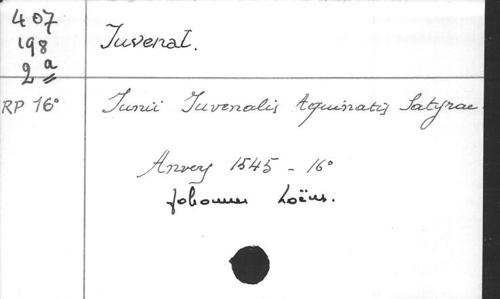 407
198
2a
Juvenal.
RP 16°
Junii Juvenalis Aquinatis Satyrae.
Anvers 1545 - 16°
Johannes Loëus.